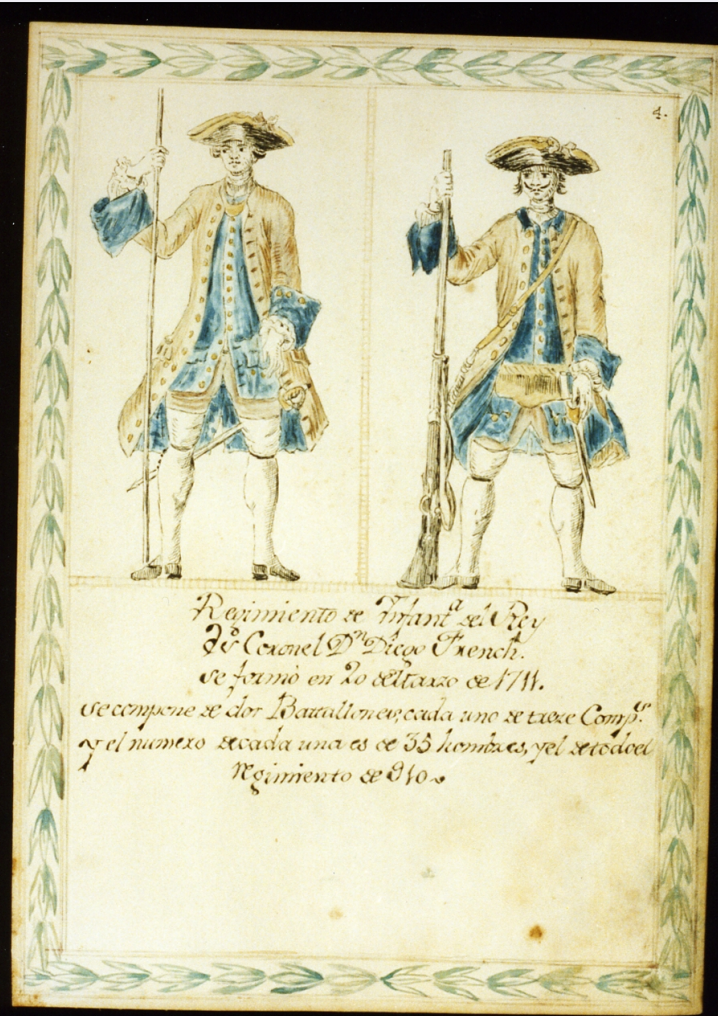 4.
Regimiento de Infant.ª del Rey
Su Coronel D.n Diego French.
se formó en 20 de Marzo de 1711.
se compone de dos Batallones, cada uno de treze Comp.s
y el numero de cada una es de 35 hombres, y el de todo el
regimiento de 910.